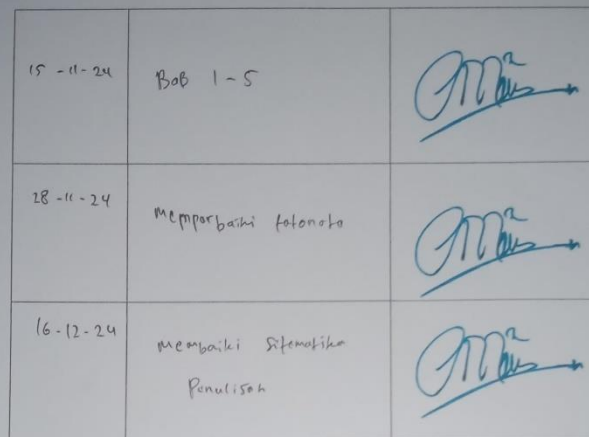 15 -11-24
BAB 1-5
28 -11-24
Memperbaiki fotonoto
16-12-24
Membaiki Sitematika
Penulisan